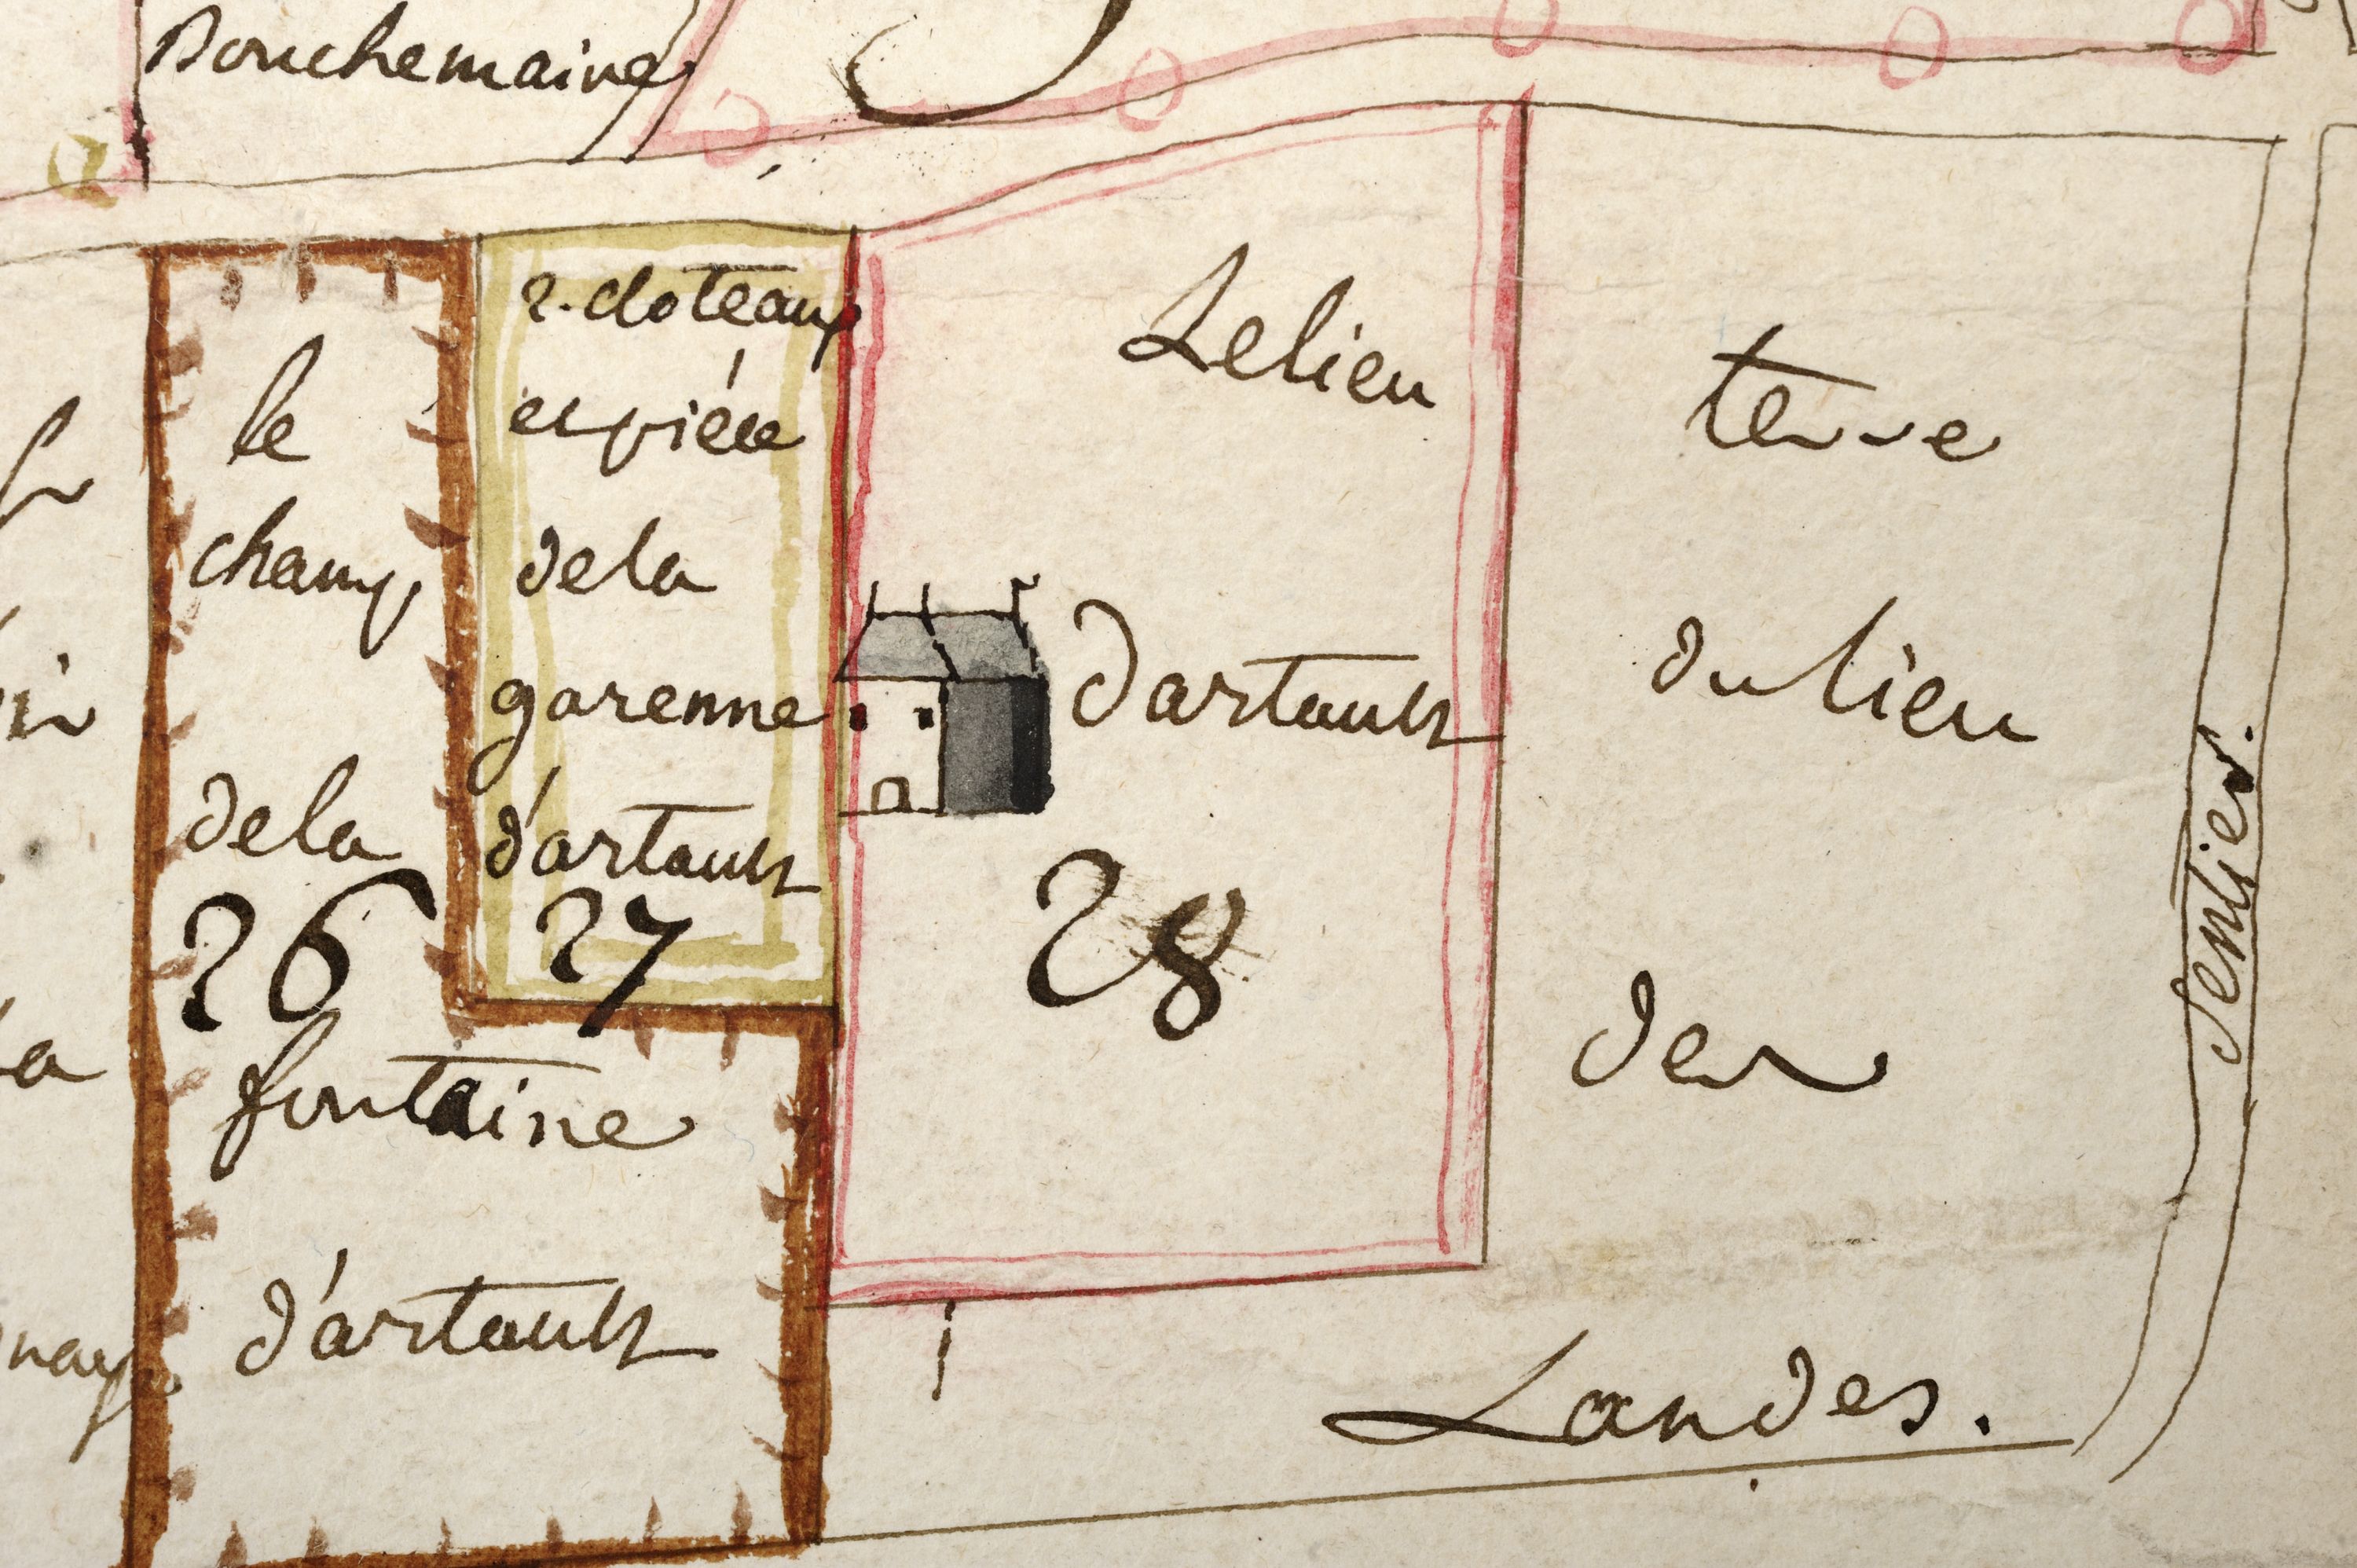 Bouchemaine
le
champ
dela
26
fontaine
d'artault
2. cloteaux
es piéce
dela
garenne
d'artault
27
Le lieu
Dartault
28
terre
du lieu
des
Landes.
Sentier.